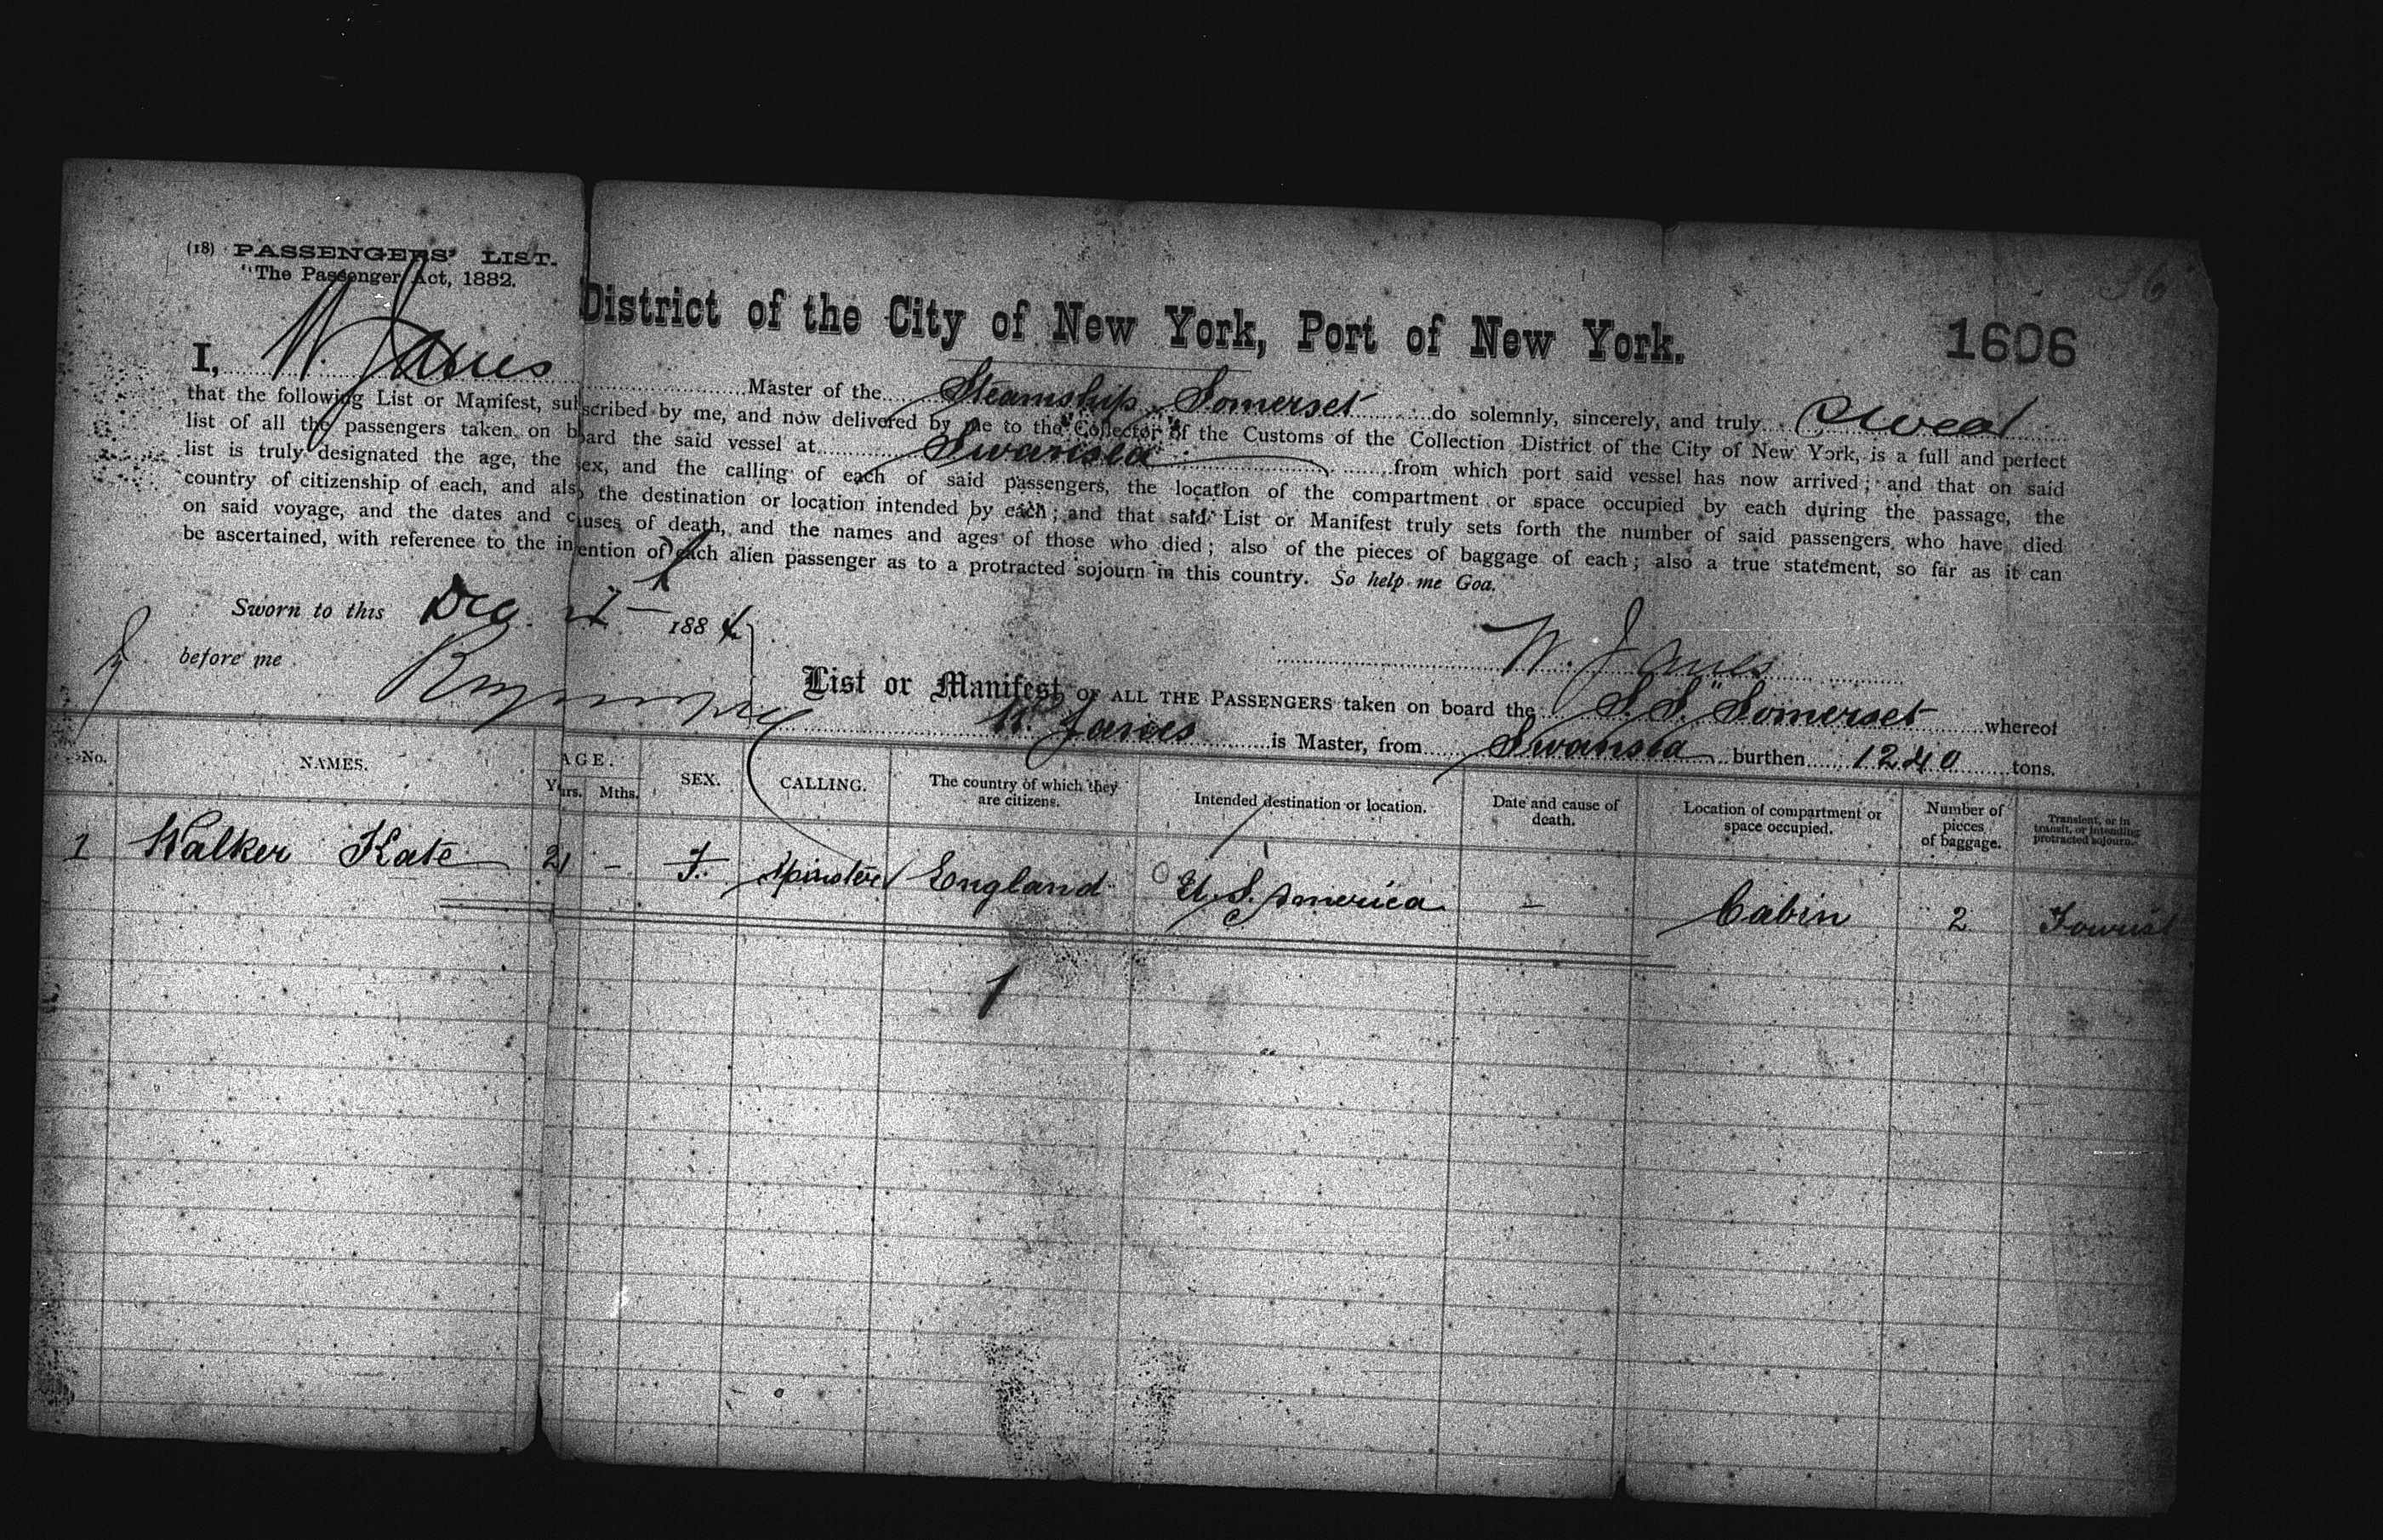 (18) PASSENGERS' LIST.
"The Passenger Act, 1882.
36
District of the City of New York, Port of New York.
1606
I, W. James Master of the Steamship "Somerset" do solemnly, sincerely, and truly swear
that the following List or Manifest, subscribed by me, and now delivered by me to the Collector of the Customs of the Collection District of the City of New York, is a full and perfect
list of all the passengers taken on board the said vessel at Swansea from which port said vessel has now arrived; and that on said
list is truly designated the age, the sex, and the calling of each of said passengers, the location of the compartment or space occupied by each during the passage, the
country of citizenship of each, and also the destination or location intended by each; and that said List or Manifest truly sets forth the number of said passengers who have died
on said voyage, and the dates and causes of death, and the names and ages of those who died; also of the pieces of baggage of each; also a true statement, so far as it can
be ascertained, with reference to the intention of each alien passenger as to a protracted sojourn in this country. So help me God.
Sworn to this Dec 1884
before me
W. James
List or Manifest OF ALL THE PASSENGERS taken on board the S.S. "Somerset" whereof
W. James is Master, from Swansea burthen 1240 tons.
No. NAMES. AGE. Yrs. Mths. SEX. CALLING. The country of which they are citizens. Intended destination or location. Date and cause of death. Location of compartment or space occupied. Number of pieces of baggage. Transient, or in transit, or intending protracted sojourn.
1 Walker Kate 21 – F. Spinster England U.S. America – Cabin 2 Tourist
1